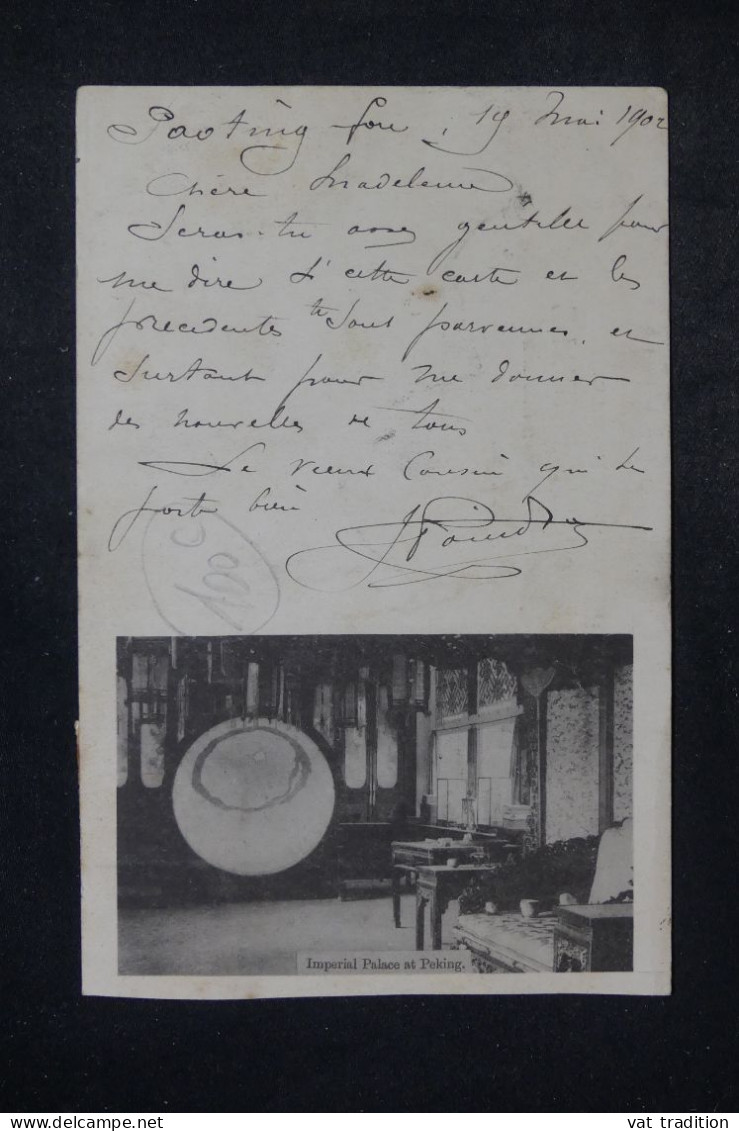 Paoting fou, 19 Mai 1902
Chère Madeleine
Seras-tu assez gentille pour
me dire si cette carte et les
precedentes te sont parvenues, et
surtout pour me donner
des nouvelles de tous
Le vieux Cousin qui se
porte bien
Imperial Palace at Peking.
vat tradition